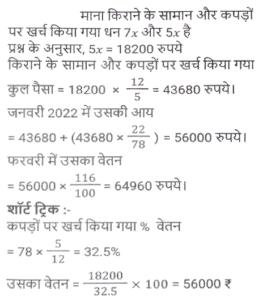 माना किराने के सामान और कपड़ों
पर खर्च किया गया धन 7x और 5x है
प्रश्न के अनुसार, 5x = 18200 रुपये
किराने के सामान और कपड़ों पर खर्च किया गया
कुल पैसा = 18200 × 12/5 = 43680 रुपये।
जनवरी 2022 में उसकी आय
= 43680 + (43680 × 22/78) = 56000 रुपये।
फरवरी में उसका वेतन
= 56000 × 116/100 = 64960 रुपये।
शॉर्ट ट्रिक :-
कपड़ों पर खर्च किया गया % वेतन
= 78 × 5/12 = 32.5%
उसका वेतन = 18200/32.5 × 100 = 56000 ₹